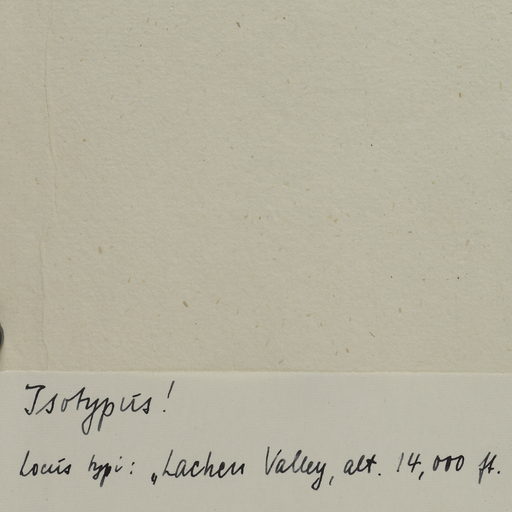 Isotypus!
Locus typi: „Lachen Valley, alt. 14,000 ft.